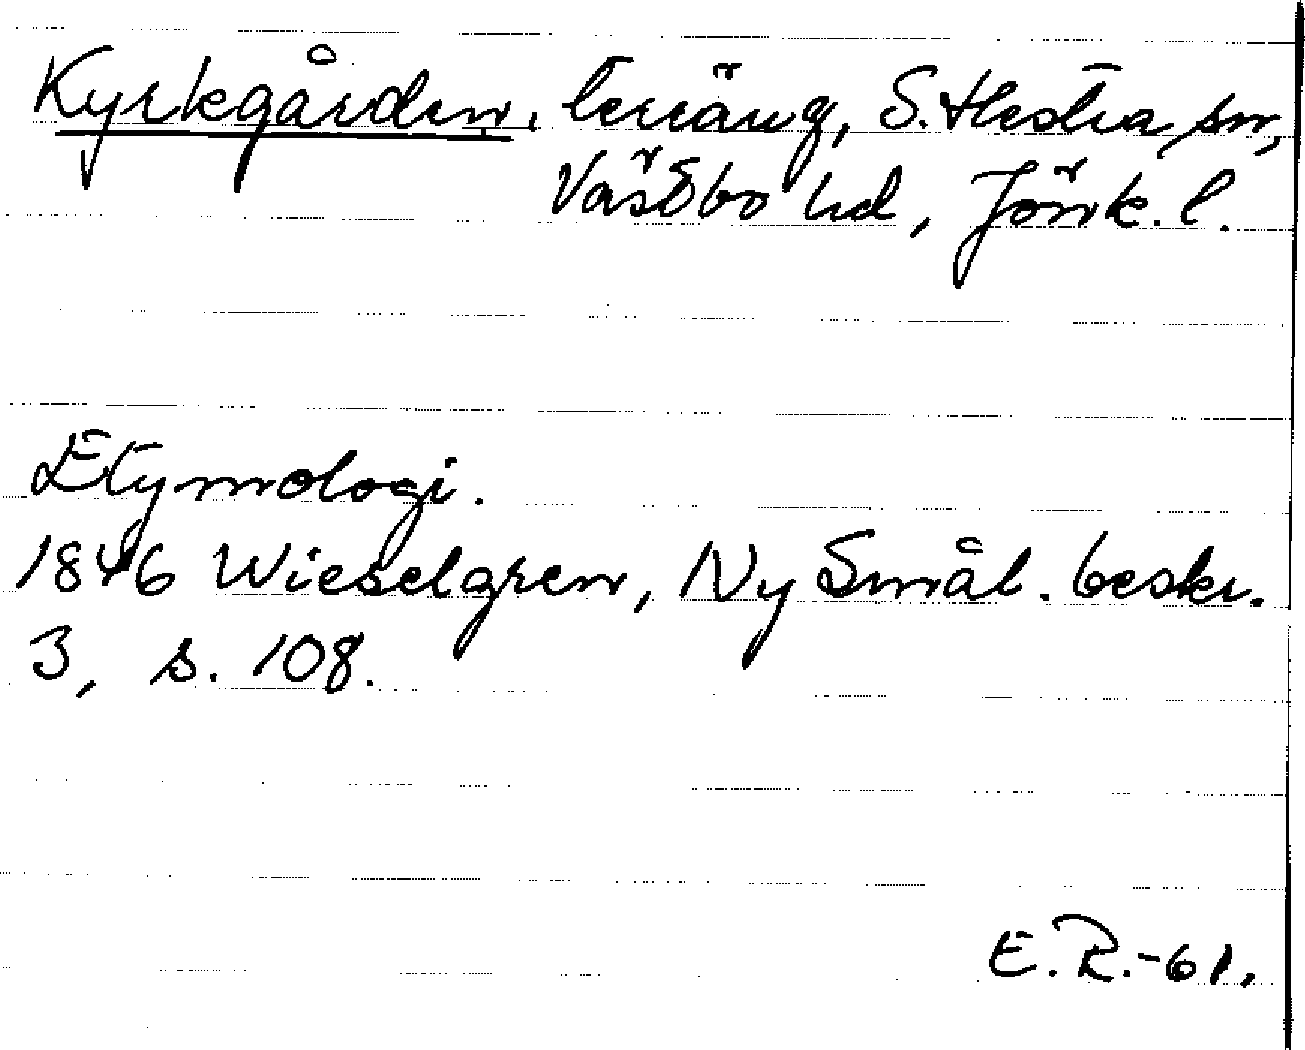 Kyrkgården, terräng, S. Hestra sn,
Västbo hd, Jönk. l.
Etymologi.
1846 Wieselgren, Ny Smål. beskr.
3, s. 108.
E. R. -61.